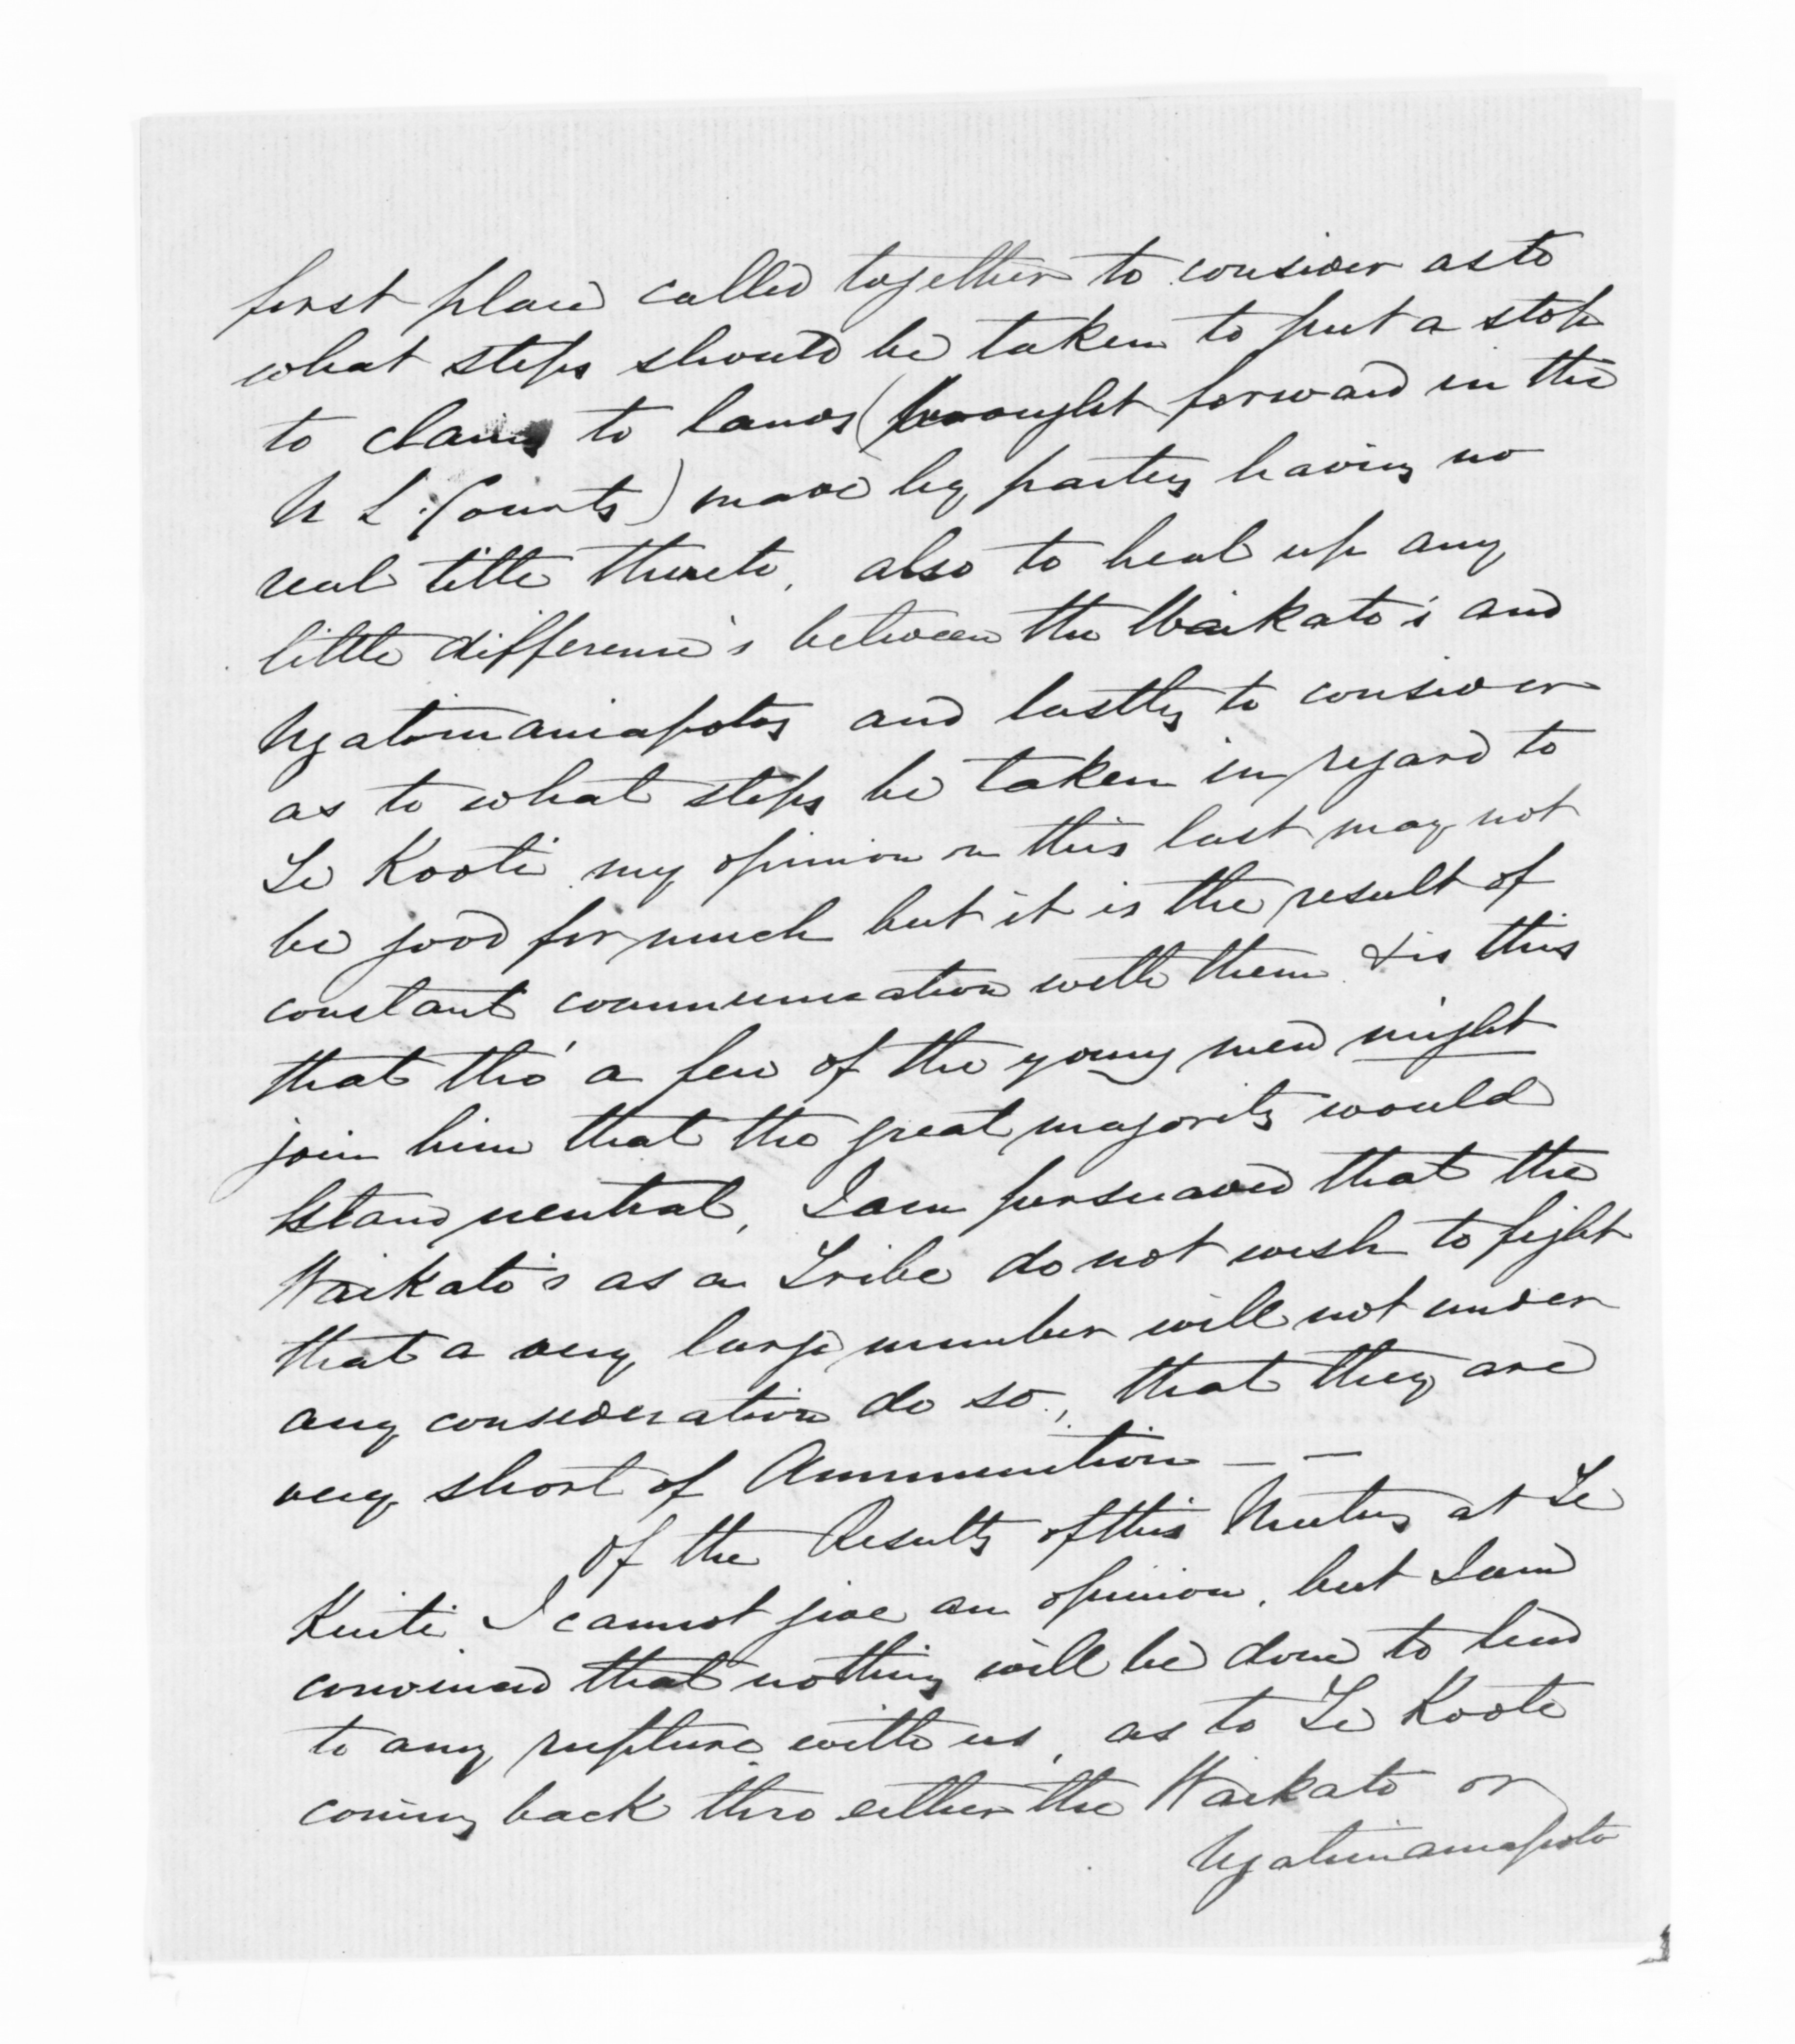 first place called together to consider as to
what steps should be taken to put a stop
to claims to lands (brought forward in the
N L. Courts) made by partys having no
real title thereto, also to heal up any
little difference's between the Waikato's and
Ngatimaniapotos and lastly to consider
as to what steps be taken in regard to
Te Kooti my opinion on this last may not
be good for much but it is the result of
constant communication with them & is this
that tho' a few of the young men might
join him that the great majority would
stand neutral, I am persuaded that the
Waikato's as a Tribe do not wish to fight
that a very large number will not under
any consideration do so, that they are
very short of Ammunition – –
Of the Results of this Meeting at Te
Kuiti I cannot give an opinion, but I am
convinced that nothing will be done to lead
to any rupture with us, as to Te Kooti
coming back thro either the Waikato or
Ngatimaniapoto